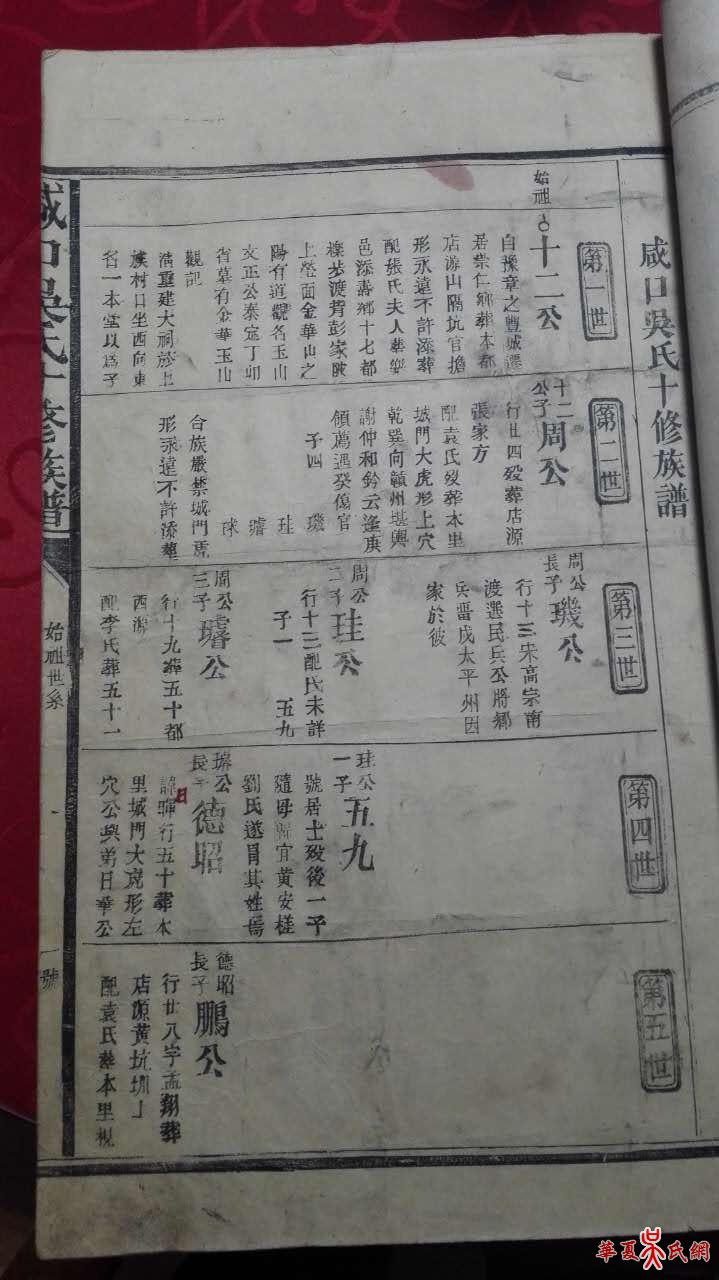 咸口吳氏十修族譜
第一世
始祖
十二公
自豫章之豐城遷
居崇仁鄉葬本都
店源山隔坑官擔
形永遠不許添葬
配張氏夫人葬樂
邑添壽鄉十七都
棶步渡背彭家陂
上瑩面金華山之
陽有道觀名玉山
文正公秦定丁卯
省墓有金華玉山
觀記
清重建大祠於上
族村口坐西向東
名一本堂以爲子
第二世
十二公子
周公
行廿四歿葬店源
張家方
配袁氏歿葬本里
城門大虎形上穴
乾巽向贛州堪輿
謝仲和鈐云逢庚
領薦遇癸傷官
子四
璣
珪
璿
球
合族嚴禁城門虎
形永遠不許添葬
第三世
周公長子
璣公
行十三宋高宗南
渡選民兵公將鄉
兵晋戍太平州因
家於彼
周公二子
珪公
行十三配氏未詳
子一
五九
周公三子
璿公
行十九葬五十都
西源
配李氏葬五十一
第四世
珪公一子
五九
號居士歿後一子
隨母歸宜黃安槎
劉氏遂冒其姓焉
璿公長子
德昭
諱暉行五十葬本
日
里城門大虎形左
穴公與弟日華公
第五世
德昭長子
鵬公
行廿八字孟翔葬
店源黃坑圳上
配袁氏葬本里楓
咸口吳氏十修族譜
始祖世系
一號
華夏吳氏網